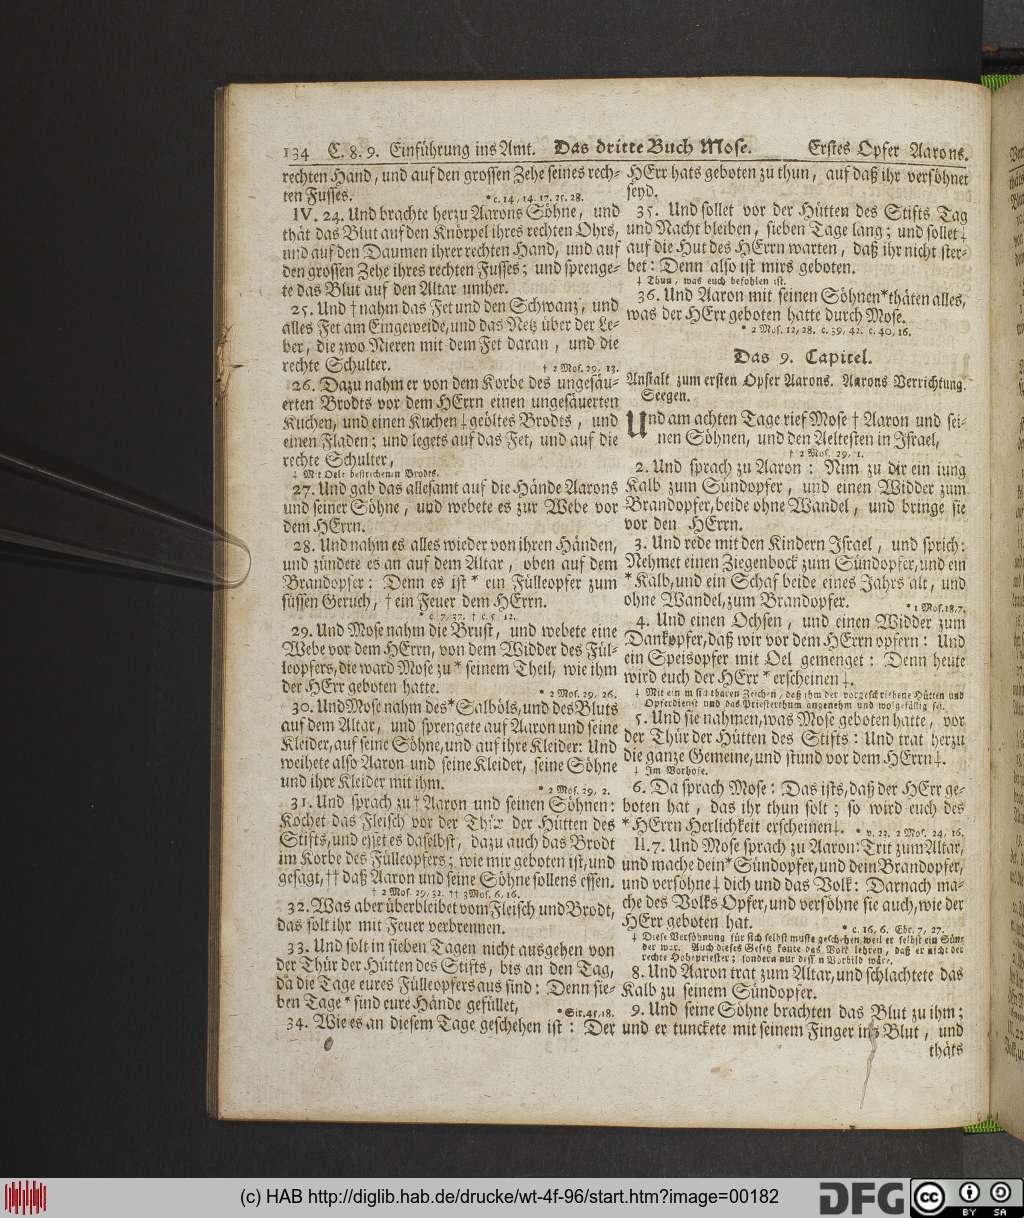 134 C. 8. 9. Einführung ins Amt. Das dritte Buch Mose. Erstes Opfer Aarons.
rechten Hand, und auf den grossen Zehe seines rech-
ten Fusses. * c. 14, 14. 17. 25. 28.
IV. 24. Und brachte herzu Aarons Söhne, und
thät das Blut auf den Knörpel ihres rechten Ohrs,
und auf den Daumen ihrer rechten Hand, und auf
den grossen Zehe ihres rechten Fusses; und sprenge-
te das Blut auf den Altar umher.
25. Und † nahm das Fet und den Schwanz, und
alles Fet am Eingeweide, und das Netz über der Le-
ber, die zwo Nieren mit dem Fet daran, und die
rechte Schulter. † 2 Mos. 29, 13.
26. Dazu nahm er von dem Korbe des ungesäu-
erten Brodts vor dem HErrn einen ungesäuerten
Kuchen, und einen Kuchen ‡ geöltes Brodts, und
einen Fladen; und legets auf das Fet, und auf die
rechte Schulter,
‡ Mit Oele bestrichenen Brodts.
27. Und gab das allesamt auf die Hände Aarons
und seiner Söhne, und webete es zur Webe vor
dem HErrn.
28. Und nahm es alles wieder von ihren Händen,
und zündete es an auf dem Altar, oben auf dem
Brandopfer: Denn es ist * ein Fülleopfer zum
süssen Geruch, † ein Feuer dem HErrn.
* c. 7, 37. † c. 5, 12.
29. Und Mose nahm die Brust, und webete eine
Webe vor dem HErrn, von dem Widder des Fül-
leopfers, die ward Mose zu * seinem Theil, wie ihm
der HErr geboten hatte. * 2 Mos. 29, 26.
30. Und Mose nahm des * Salböls, und des Bluts
auf dem Altar, und sprengete auf Aaron und seine
Kleider, auf seine Söhne, und auf ihre Kleider: Und
weihete also Aaron und seine Kleider, seine Söhne
und ihre Kleider mit ihm. * 2 Mos. 29, 2.
31. Und sprach zu † Aaron und seinen Söhnen:
Kochet das Fleisch vor der Thür der Hütten des
Stifts, und esset es daselbst, dazu auch das Brodt
im Korbe des Fülleopfers; wie mir geboten ist, und
gesagt, †† daß Aaron und seine Söhne sollens essen.
† 2 Mos. 29, 32. †† 3 Mos. 6, 16.
32. Was aber überbleibet vom Fleisch und Brodt,
das solt ihr mit Feuer verbrennen.
33. Und solt in sieben Tagen nicht ausgehen von
der Thür der Hütten des Stifts, bis an den Tag,
da die Tage eures Fülleopfers aus sind: Denn sie-
ben Tage * sind eure Hände gefüllet, * Sir. 45, 18.
34. Wie es an diesem Tage geschehen ist: Der
HErr hats geboten zu thun, auf daß ihr versöhnet
seyd.
35. Und sollet vor der Hütten des Stifts Tag
und Nacht bleiben, sieben Tage lang; und sollet ‡
auf die Hut des HErrn warten, daß ihr nicht ster-
bet: Denn also ist mirs geboten.
‡ Thun, was euch befohlen ist.
36. Und Aaron mit seinen Söhnen * thäten alles,
was der HErr geboten hatte durch Mose.
* 2 Mos. 12, 28. c. 39, 42. c. 40, 16.
Das 9. Capitel.
Anstalt zum ersten Opfer Aarons. Aarons Verrichtung.
Seegen.
Und am achten Tage rief Mose † Aaron und sei-
nen Söhnen, und den Aeltesten in Israel,
† 2 Mos. 29, 1.
2. Und sprach zu Aaron: Nim zu dir ein iung
Kalb zum Sündopfer, und einen Widder zum
Brandopfer, beide ohne Wandel, und bringe sie
vor den HErrn.
3. Und rede mit den Kindern Israel, und sprich:
Nehmet einen Ziegenbock zum Sündopfer, und ein
* Kalb, und ein Schaf beide eines Jahrs alt, und
ohne Wandel, zum Brandopfer. * 1 Mos. 18, 7.
4. Und einen Ochsen, und einen Widder zum
Dankopfer, daß wir vor dem HErrn opfern: Und
ein Speisopfer mit Oel gemenget: Denn heute
wird euch der HErr * erscheinen ‡.
‡ Mit einem sichtbaren Zeichen, daß ihm der vorgeschriebene Hütten und
Opferdienst und das Priesterthum angenehm und wolgefällig sei.
5. Und sie nahmen, was Mose geboten hatte, vor
der Thür der Hütten des Stifts: Und trat herzu
die ganze Gemeine, und stund vor dem HErrn ‡.
‡ Im Vorhofe.
6. Da sprach Mose: Das ists, daß der HErr ge-
boten hat, das ihr thun solt; so wird euch des
* HErrn Herlichkeit erscheinen ‡. * v. 23. 2 Mos. 24, 16.
II. 7. Und Mose sprach zu Aaron: Trit zum Altar,
und mache dein * Sündopfer, und dein Brandopfer,
und versöhne ‡ dich und das Volk: Darnach ma-
che des Volks Opfer, und versöhne sie auch, wie der
HErr geboten hat. * c. 16, 6. Ebr. 7, 27.
‡ Diese Versöhnung für sich selbst muste geschehen, weil er selbst ein Sün-
der war. Auch dieses Gesetz konte das Volk lehren, daß er nicht der
rechte Hohepriester; sondern nur dessen Vorbild wäre.
8. Und Aaron trat zum Altar, und schlachtete das
Kalb zu seinem Sündopfer.
9. Und seine Söhne brachten das Blut zu ihm;
und er tunckete mit seinem Finger ins Blut, und
thäts
(c) HAB http://diglib.hab.de/drucke/wt-4f-96/start.htm?image=00182
DFG
cc
BY SA